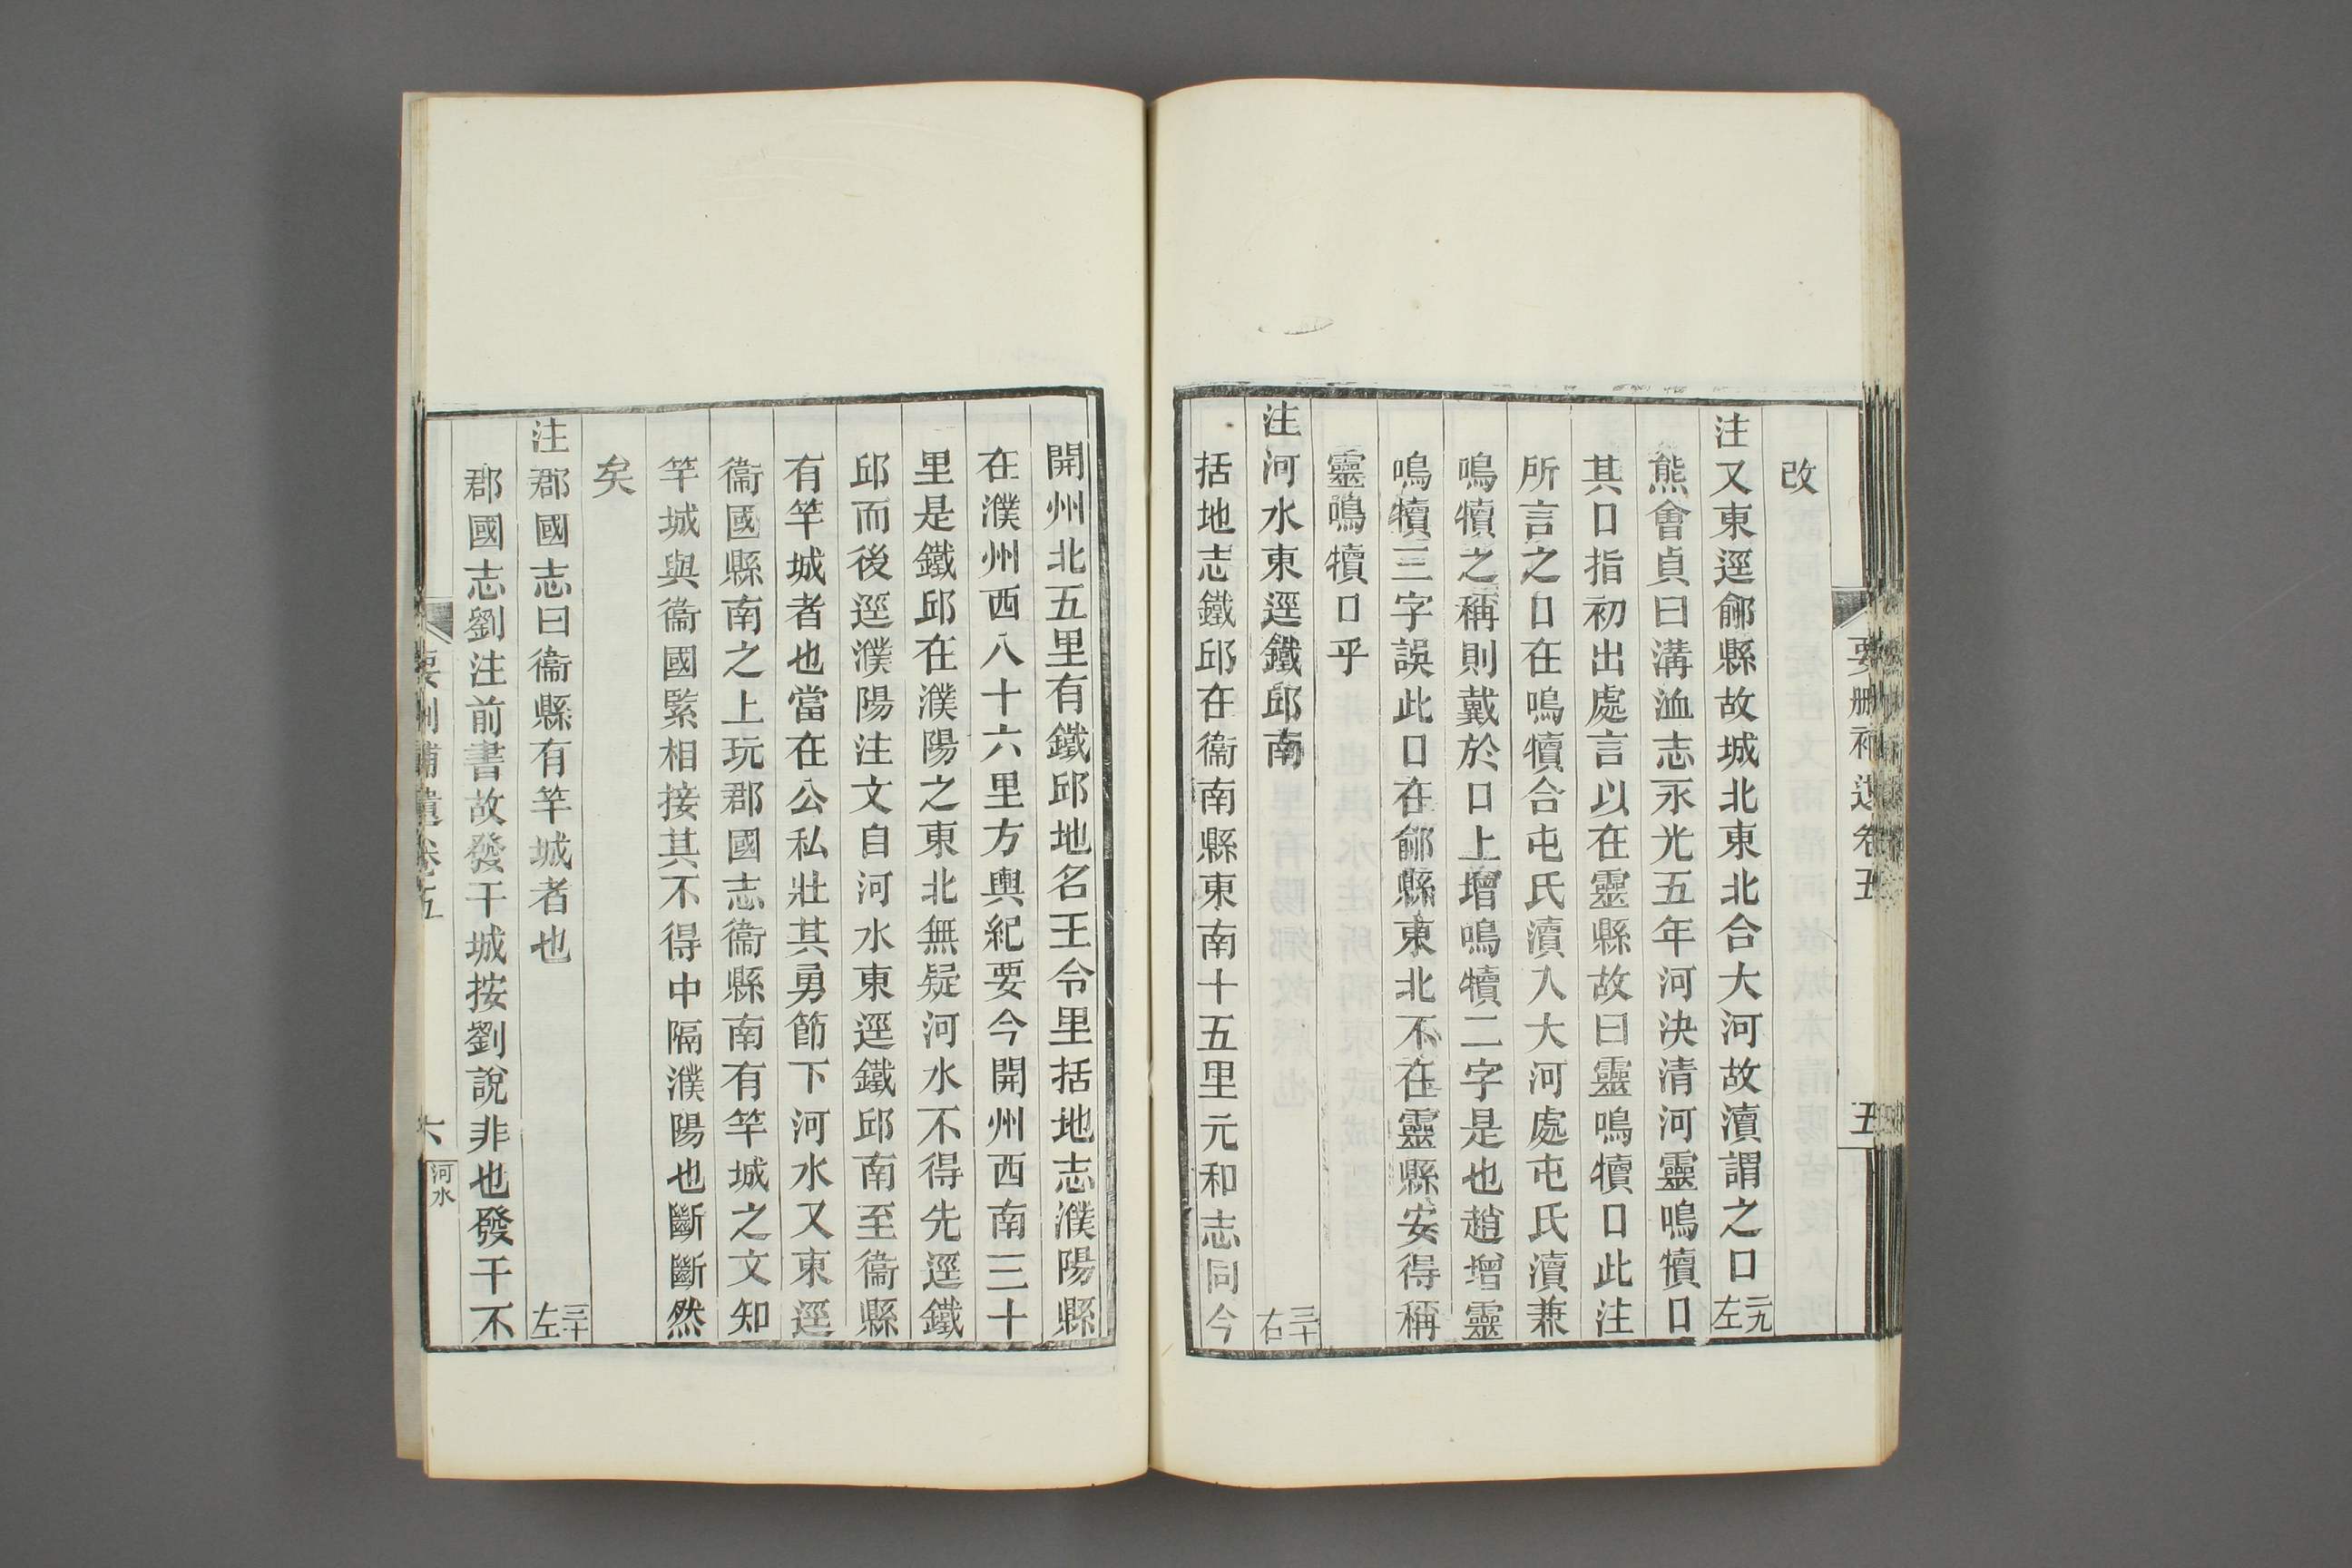 要删補遗卷五
五
改
注又東逕鄃縣故城北東北合大河故瀆謂之口 二九左
熊會貞曰溝洫志永光五年河決清河靈鳴犢口
其口指初出處言以在靈縣故曰靈鳴犢口此注
所言之口在鳴犢合屯氏瀆入大河處屯氏瀆兼
鳴犢之稱則戴於口上增鳴犢二字是也趙增靈
鳴犢三字誤此口在鄃縣東北不在靈縣安得稱
靈鳴犢口乎
注河水東逕鐵邱南 三十右
括地志鐵邱在衞南縣東南十五里元和志同今
開州北五里有鐵邱地名王令里括地志濮陽縣
在濮州西八十六里方輿紀要今開州西南三十
里是鐵邱在濮陽之東北無疑河水不得先逕鐵
邱而後逕濮陽注文自河水東逕鐵邱南至衞縣
有竿城者也當在公私壯其勇節下河水又東逕
衞國縣南之上玩郡國志衞縣南有竿城之文知
竿城與衞國緊相接其不得中隔濮陽也斷斷然
矣
注郡國志曰衞縣有竿城者也 三十左
郡國志劉注前書故發干城按劉說非也發干不
要刪補遺卷五
六
河水